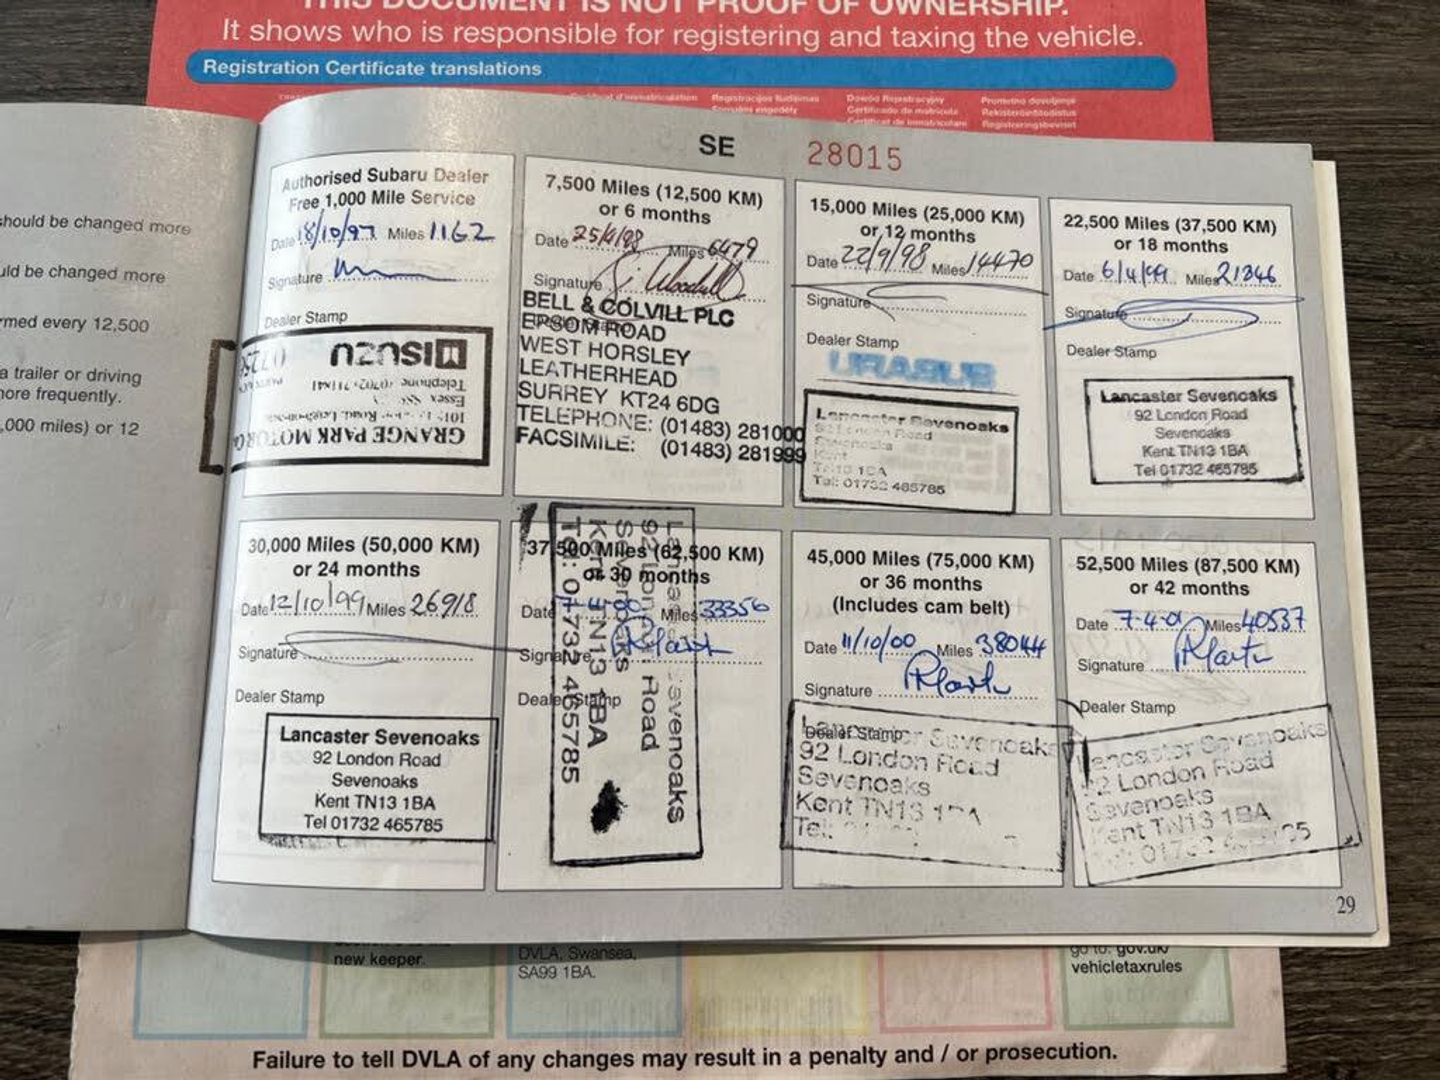 THIS DOCUMENT IS NOT PROOF OF OWNERSHIP.
It shows who is responsible for registering and taxing the vehicle.
Registration Certificate translations
Certificat d'immatriculation Registracijos liudijimas Dowód Rejestracyjny Prometno dovoljenje
Certificado de matrícula Rekisteröintitodistus
Certificat de înmatriculare Registreringsbeviset
should be changed more
uld be changed more
rmed every 12,500
a trailer or driving
more frequently.
,000 miles) or 12
SE 28015
Authorised Subaru Dealer
Free 1,000 Mile Service
Date 18/10/97 Miles 1162
Signature
Dealer Stamp
ISUZU
GRANGE PARK MOTOR
Telephone (0702) 711841
Essex
7,500 Miles (12,500 KM)
or 6 months
Date 25/4/98 Miles 6479
Signature
BELL & COLVILL PLC
EPSOM ROAD
WEST HORSLEY
LEATHERHEAD
SURREY KT24 6DG
TELEPHONE: (01483) 281000
FACSIMILE: (01483) 281999
15,000 Miles (25,000 KM)
or 12 months
Date 22/9/98 Miles 14470
Signature
Dealer Stamp
Lancaster Sevenoaks
92 London Road
Sevenoaks
Kent
TN13 1BA
Tel: 01732 465785
22,500 Miles (37,500 KM)
or 18 months
Date 6/4/99 Miles 21346
Signature
Dealer Stamp
Lancaster Sevenoaks
92 London Road
Sevenoaks
Kent TN13 1BA
Tel 01732 465785
30,000 Miles (50,000 KM)
or 24 months
Date 12/10/99 Miles 26918
Signature
Dealer Stamp
Lancaster Sevenoaks
92 London Road
Sevenoaks
Kent TN13 1BA
Tel 01732 465785
37,500 Miles (62,500 KM)
or 30 months
Date Miles 33356
Signature
Dealer Stamp
Lancaster Sevenoaks
92 London Road
Sevenoaks
Kent TN13 1BA
Tel: 01732 465785
45,000 Miles (75,000 KM)
or 36 months
(Includes cam belt)
Date 11/10/00 Miles 38044
Signature
Dealer Stamp
Lancaster Sevenoaks
92 London Road
Sevenoaks
Kent TN13
Tel:
52,500 Miles (87,500 KM)
or 42 months
Date 7-4-01 Miles 40537
Signature
Dealer Stamp
Lancaster Sevenoaks
92 London Road
Sevenoaks
Kent TN13 1BA
29
new keeper.
DVLA, Swansea,
SA99 1BA.
go to: gov.uk/
vehicletaxrules
Failure to tell DVLA of any changes may result in a penalty and / or prosecution.